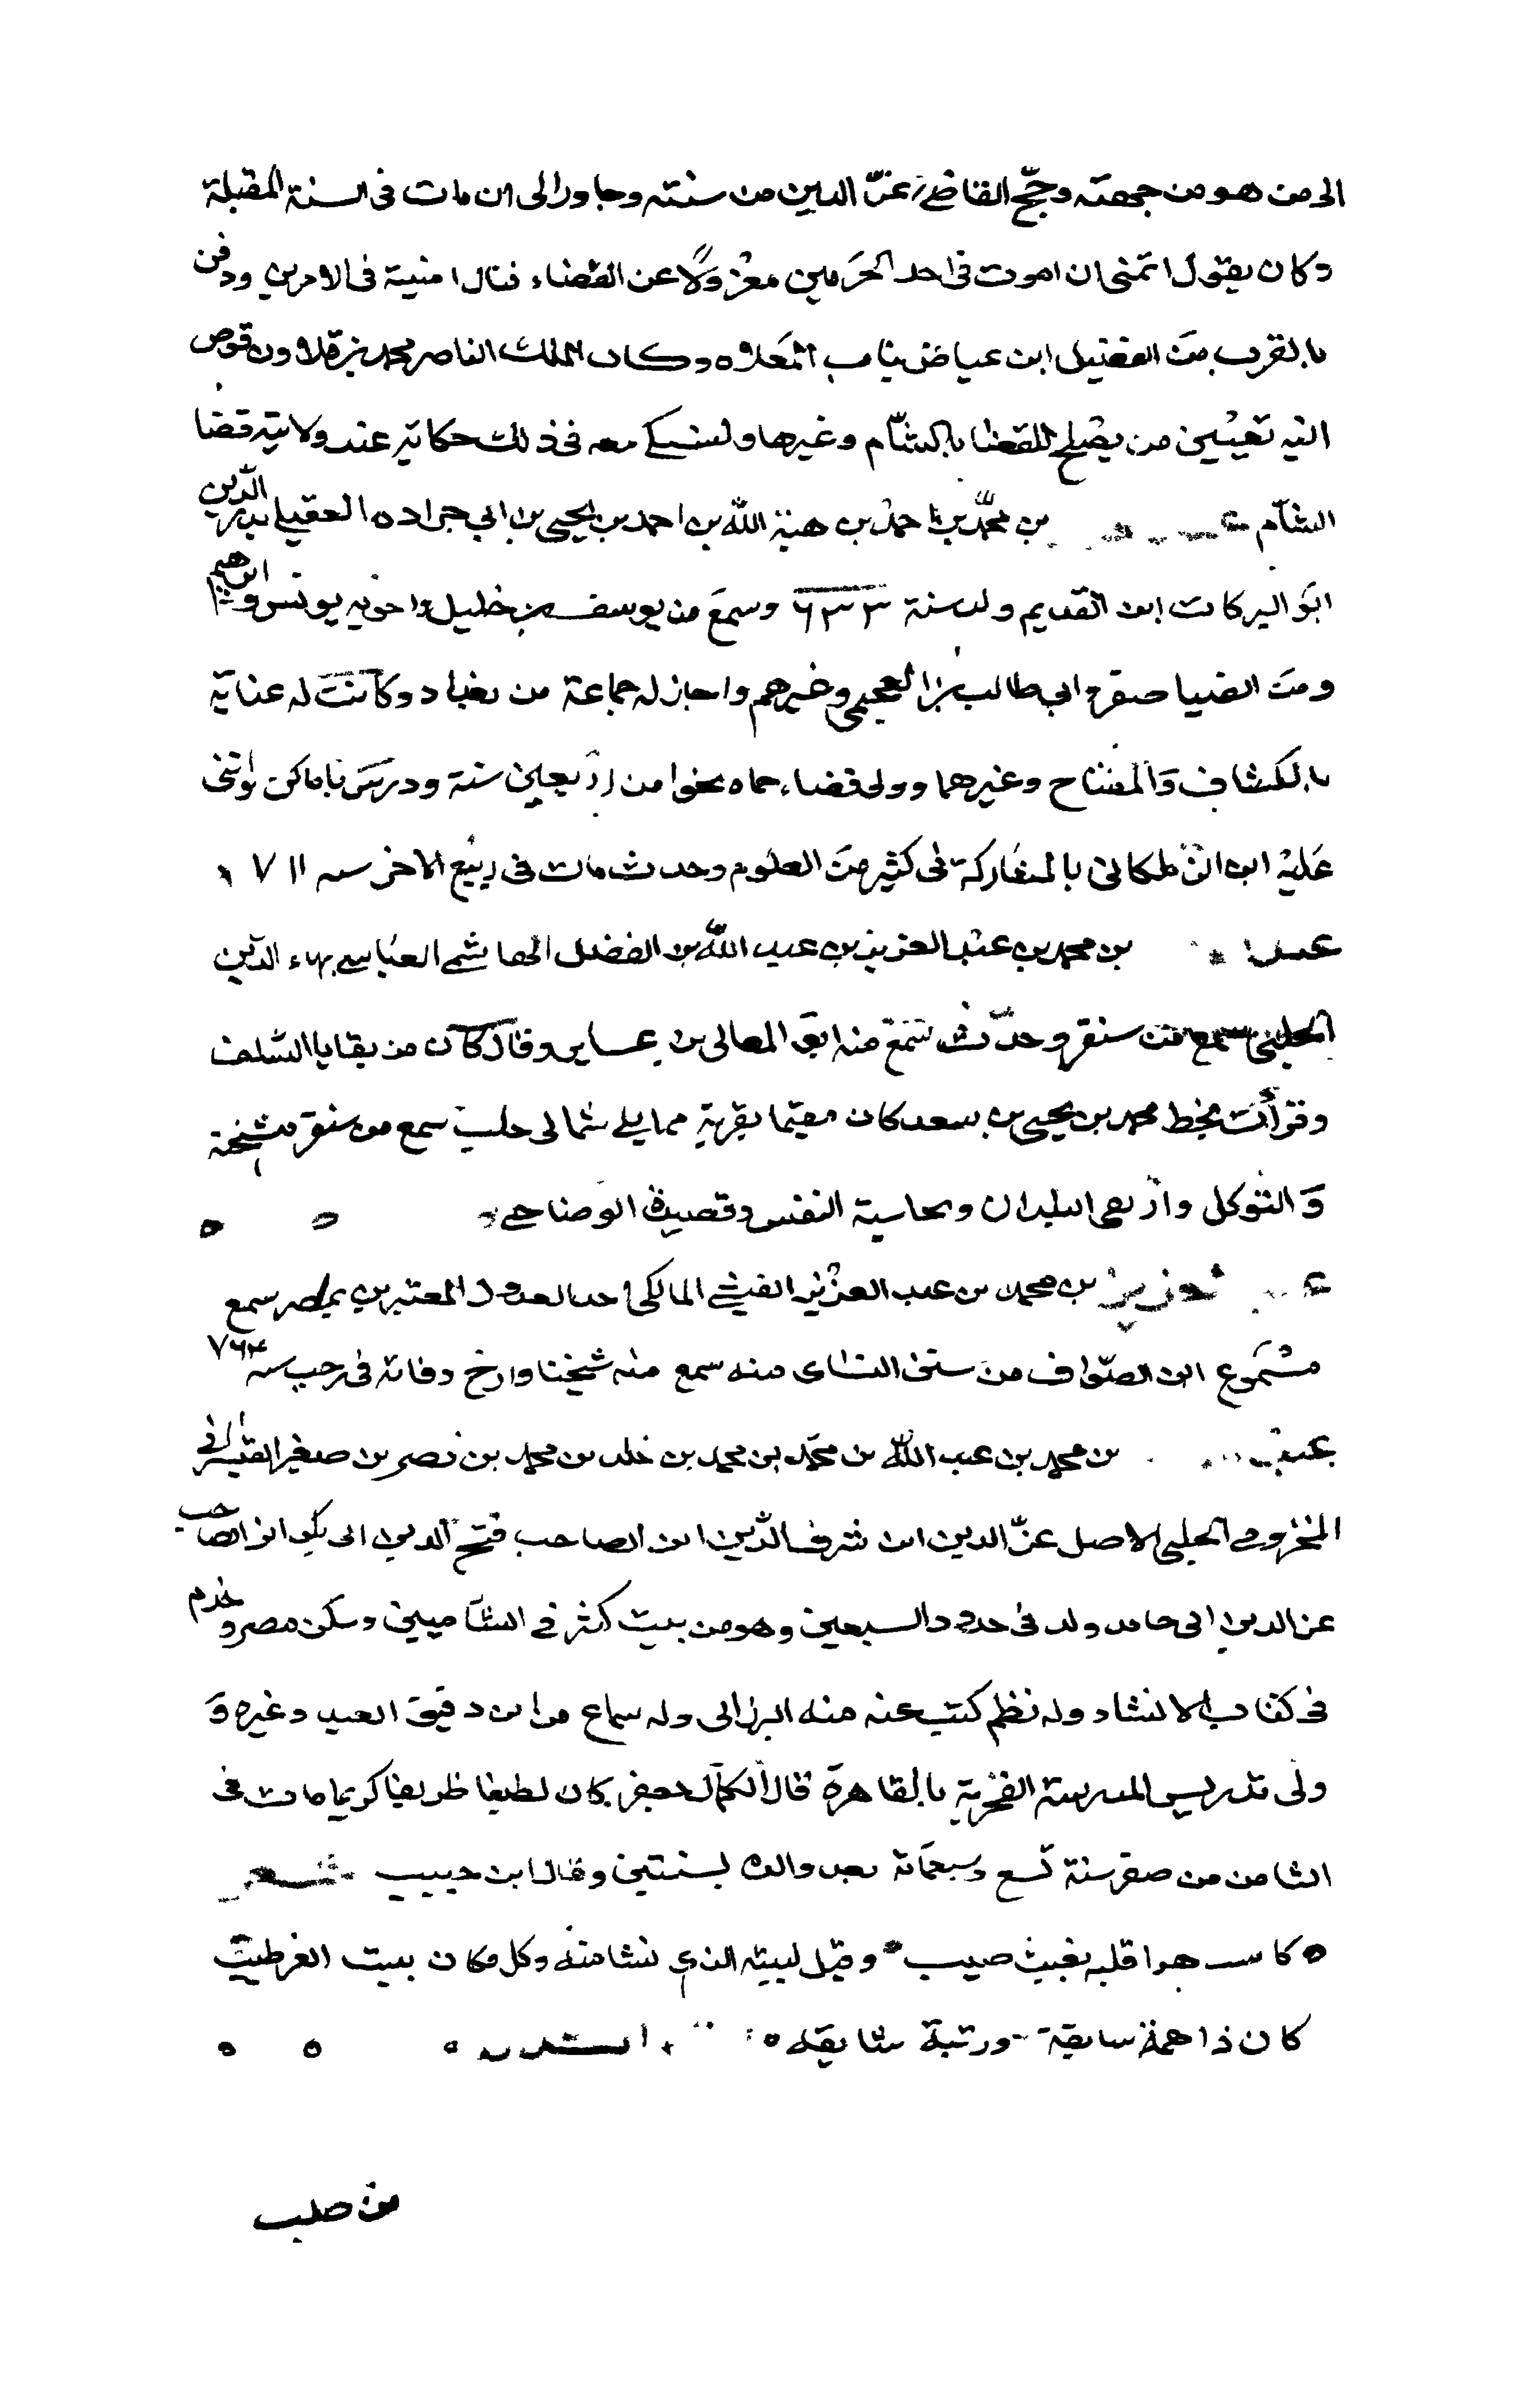 الى من هو من جهته وحج القاضى عزّ الدين من سنته وجاور الى ان مات فى السنة المقبلة
وكان يقول اتمنى ان اموت فى احد الحرمين معزولًا عن القضاء فنال امنيته فى الامرين ودفن
بالقرب من الفضيل ابن عياض بباب المعلاه وكان الملك الناصر محمد بن قلاوون فوض
اليه تعيين من يصلح للقضا بالشام وغيرها وللسبكى معه فى ذلك حكاية عند ولايته قضا
الشام بن محمّد بن احمد بن هبة الله بن احمد بن يحيى بن ابي جراده العقيلى بدر الدّين
ابو البركات ابن العديم ولد سنة ٦٣٣ وسمع من يوسف بن خليل واخويه يونس و ابرهيم
ومن الضيا صقر وابي طالب بن العجمى وغيرهم واجاز له جماعة من بغداد وكانت له عناية
بالكشاف والمفتاح وغيرهما وولى قضاء حماه نحوا من اربعين سنة ودرس باماكن واثنى
عليه ابن الزملكانى بالمشاركة فى كثير من العلوم وحدث مات فى ربيع الاخر سنه ٧١١
بن محمد بن عبد العزيز بن عبد الله بن الفضل الهاشمى العباسى بهاء الدّين
الحلبى سمع من سنقر وحدّث سمع منه ابو المعالى بن عساير وقال كان من بقايا السّلف
وقرأت بخط محمد بن يحيى بن سعد كان مقيما بقرية مما يلى شمالى حلب سمع من سنقر مشيخته
والتوكل واربعى البلدان ومحاسبة النفس وقصيدة الوضاحى
بن محمد بن عبد العزيز الفيشى المالكى احد العدول المعتبرين بمصر سمع
مسموع ابن الصوّاف من سنن النساى منه سمع منه شيخنا وارخ وفاته فى رجب سنه ٧٦٤
بن محمد بن عبد الله بن محمّد بن محمد بن خلد بن محمد بن نصر بن صغير القيسرانى
المخزومى الحلبى الاصل عزّ الدين ابن شرف الدّين ابن الصاحب فتح الدين ابى بكر ابن الصاحب
عز الدين ابى حامد ولد فى حدود السبعين وهو من بيت كثر فى الشاميين وسكن مصر وخدم
فى كتاب الانشاء وله نظم كتب عنه منه البرزالى وله سماع من ابن دقيق العيد وغيره و
ولى تدريس المدرسة الفخرية بالقاهرة قال الكمال جعفر كان لطيفا ظريفا كريما مات فى
الثامن من صفر سنة تسع وسبعمائة بعد والده بسنتين وقال ابن حبيب شعر
قلبه بغيث صيب وقيل لبيته الذى نشا منه وكل مكان ينبت العز طيب
كان ذا همة سابقة ورتبة شايقه
من حلب